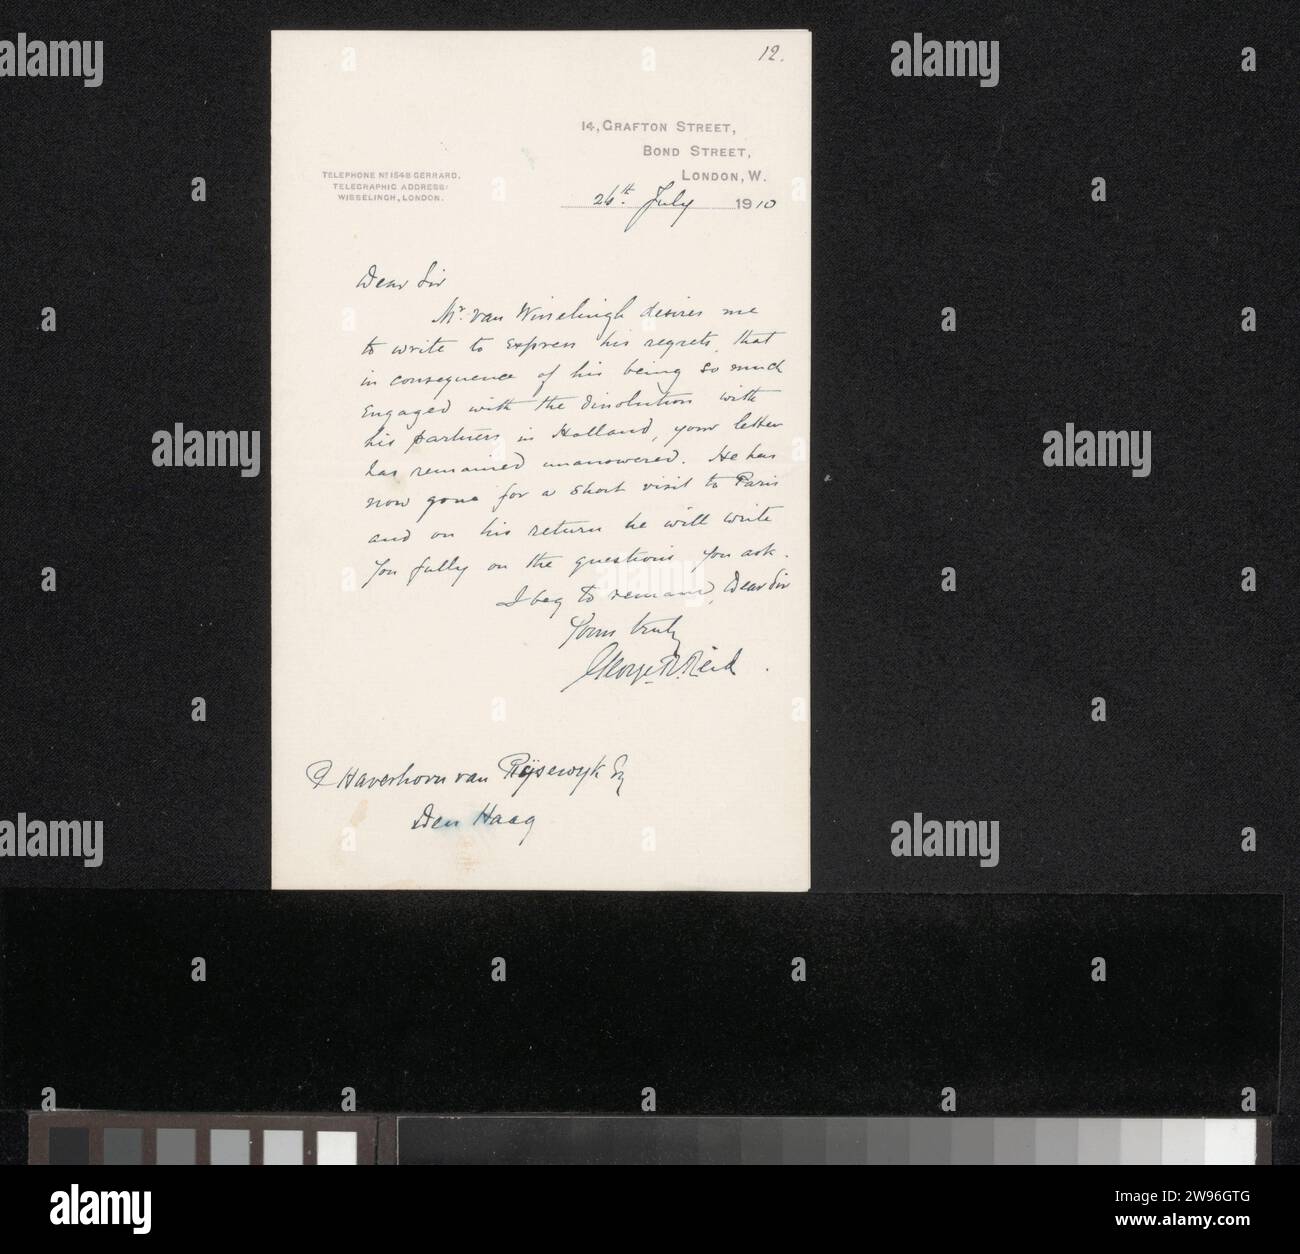 12.
14, GRAFTON STREET,
BOND STREET,
LONDON, W.
TELEPHONE No 1548 GERRARD.
TELEGRAPHIC ADDRESS:
WISSELINGH, LONDON.
26th July 1910
Dear Sir
Mr. van Wisselingh desires me
to write to express his regrets that
in consequence of his being so much
engaged with the dissolution with
his partners in Holland, your letter
has remained unanswered. He has
now gone for a short visit to Paris
and on his return he will write
you fully on the questions you ask.
I beg to remain, Dear Sir
Yours truly
George R. Reid.
P Haverkorn van Rijsewijk Esq
Den Haag
alamy
a
alamy
Image ID: 2W96GTG
www.alamy.com